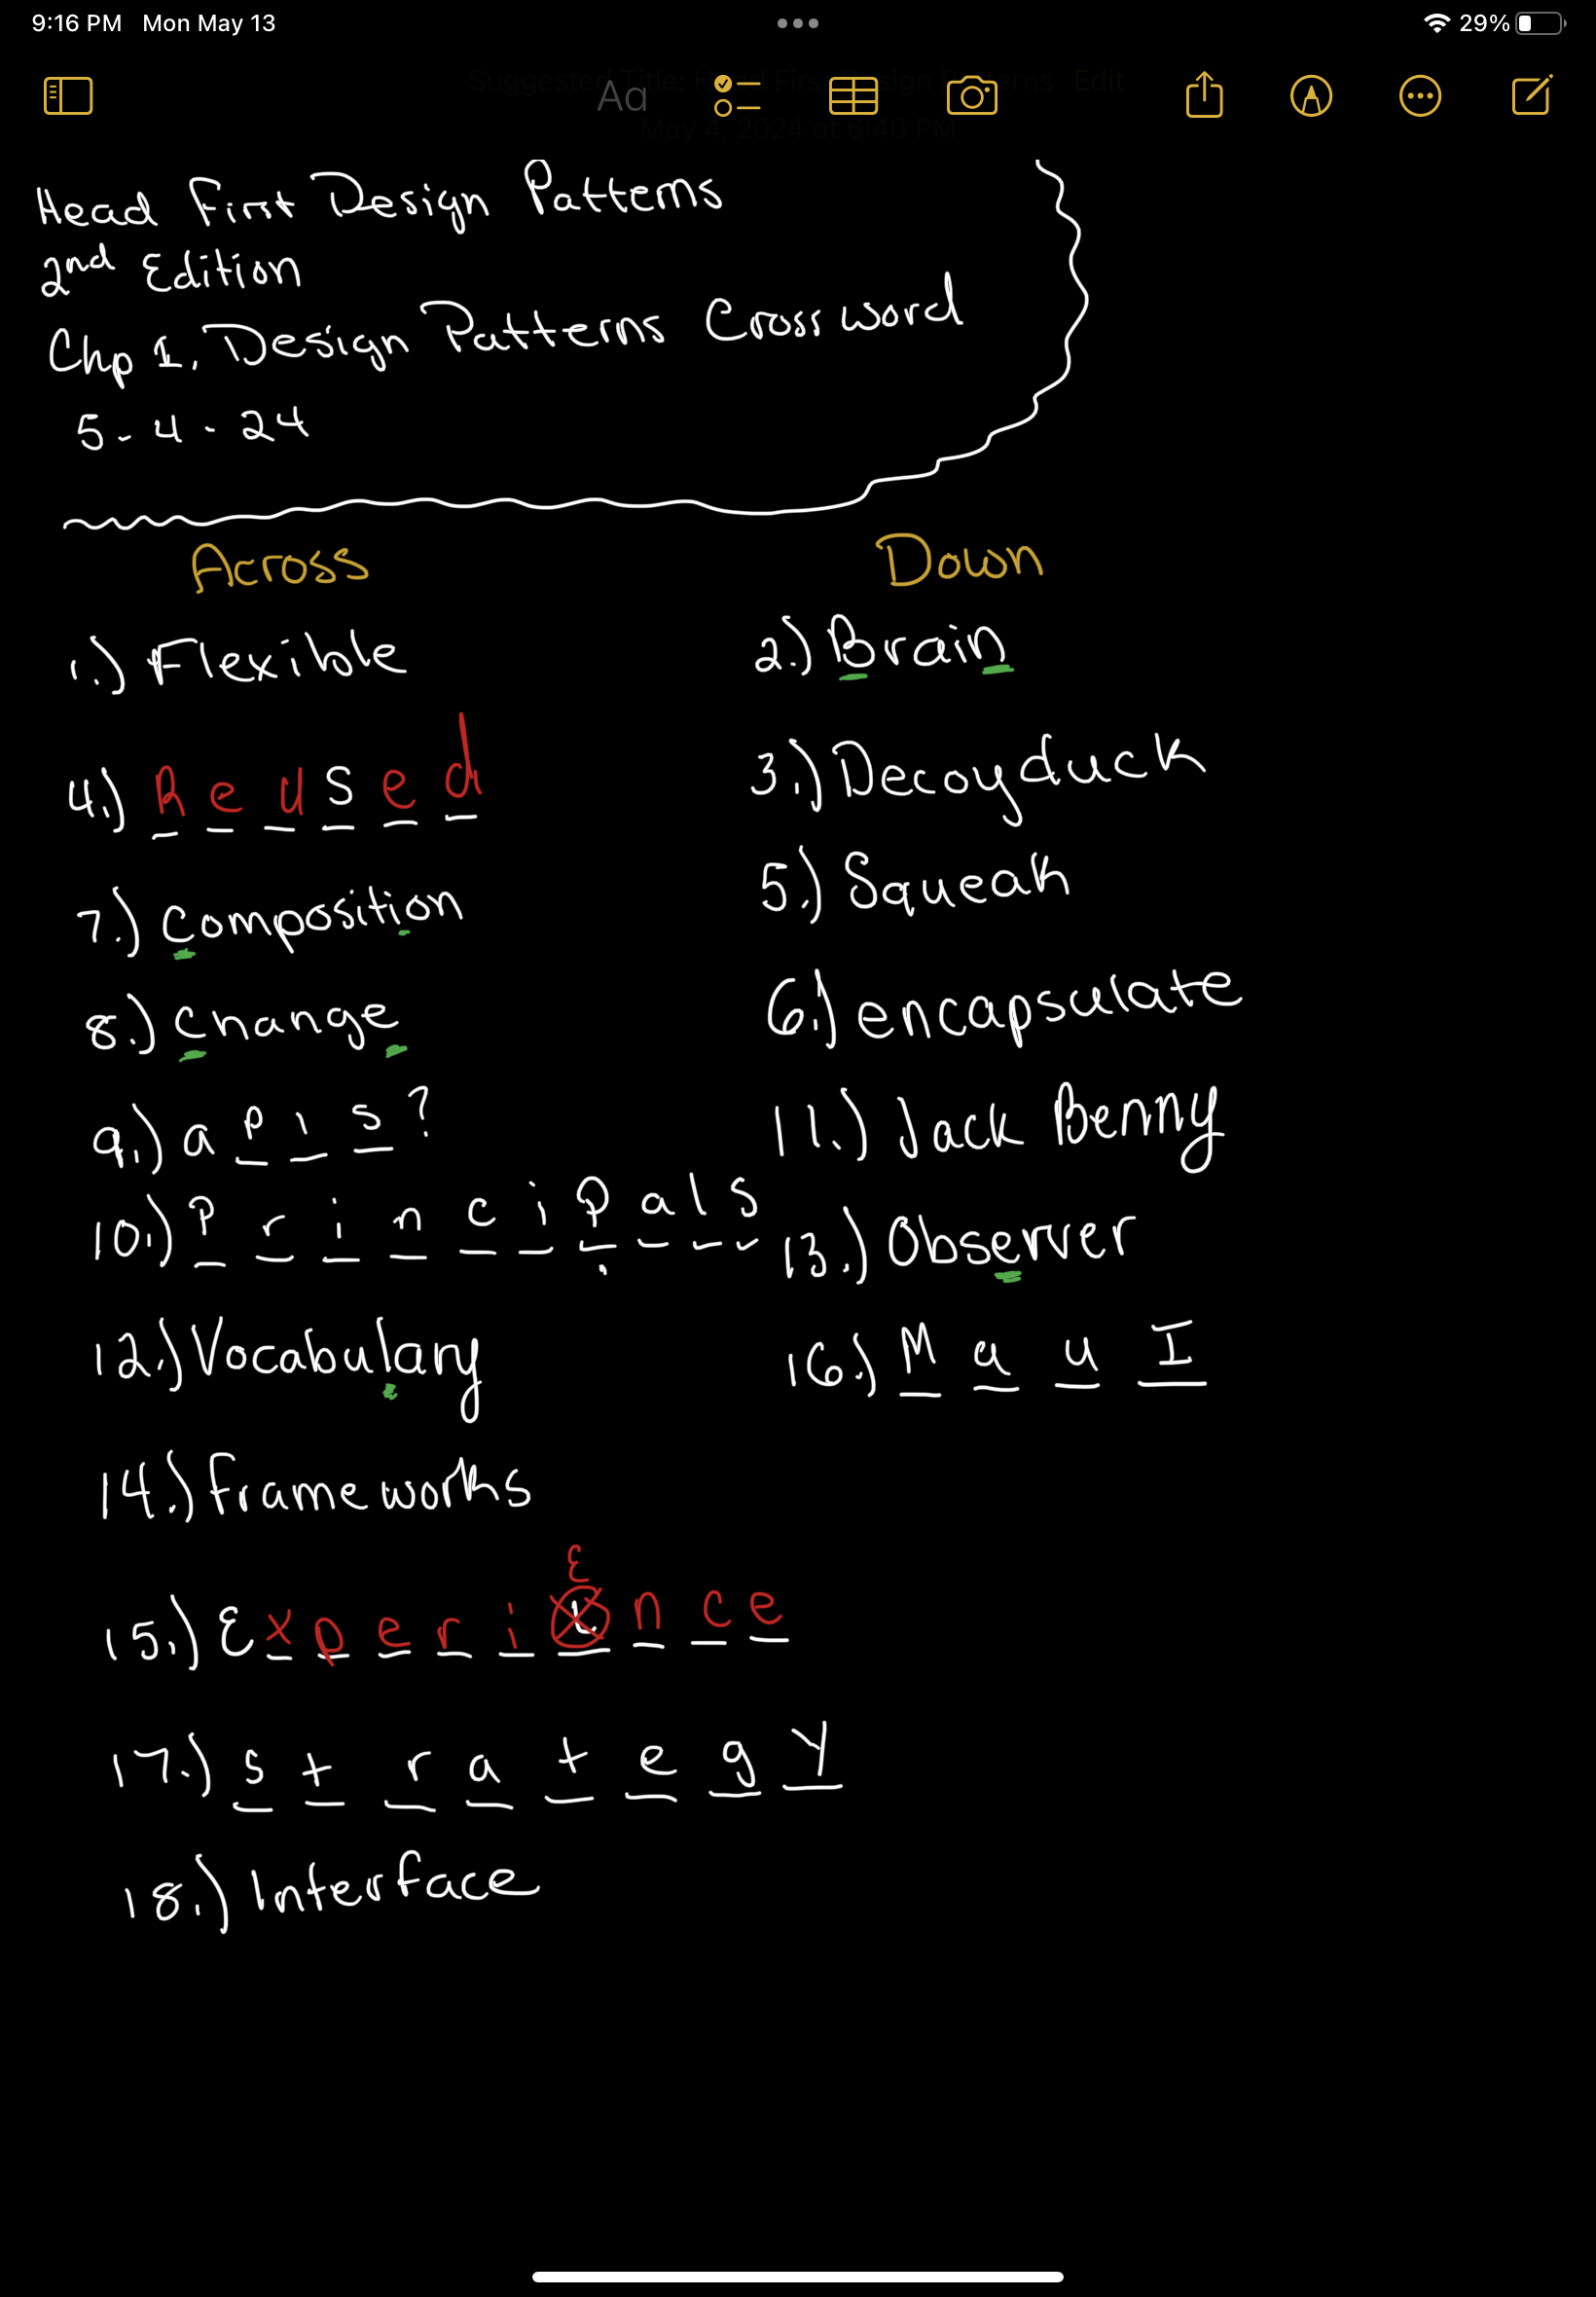 9:16 PM Mon May 13
29%
Suggested Title: Head First Design Patterns Edit
Aa
May 4, 2024 at 6:40 PM
Head First Design Patterns
2nd Edition
Chp 1. Design Patterns Crossword
5-4-24
Across
1.) Flexible
4.) Reused
7.) Composition
8.) Change
9.) apis?
10.) Principals
12.) Vocabulary
14.) Frameworks
E
15.) Experience
17.) strategy
18.) Interface
Down
2.) Brain
3.) Decoyduck
5.) Squeak
6.) encapsulate
11.) Jack Benny
13.) Observer
16.) MauI